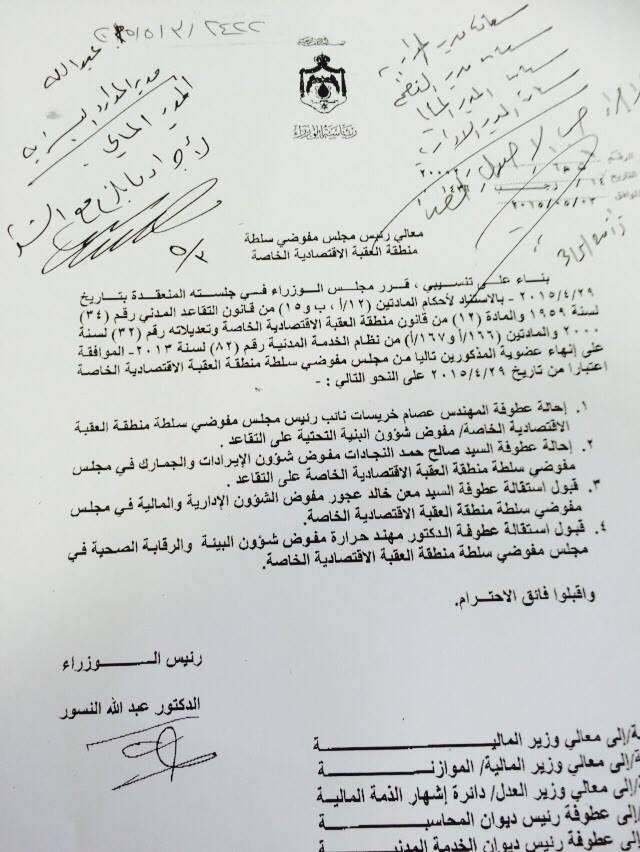 عبدالله
مدير الموارد البشرية
المدير المالي
رئاسة الوزراء
الرقم
التاريخ
الموافق
٢٠١٥/٠٥/٠٣
٥/٣
معالي رئيس مجلس مفوضي سلطة
منطقة العقبة الاقتصادية الخاصة
بناء على تنسيبي ، قرر مجلس الوزراء في جلسته المنعقدة بتاريخ
٢٠١٥/٤/٢٩ - بالاستناد لأحكام المادتين (١٢/أ ، ب و١٥) من قانون التقاعد المدني رقم (٣٤)
لسنة ١٩٥٩ والمادة (١٢) من قانون منطقة العقبة الاقتصادية الخاصة وتعديلاته رقم (٣٢) لسنة
٢٠٠٠ والمادتين (١٦٦/أ و١٦٧/أ) من نظام الخدمة المدنية رقم (٨٢) لسنة ٢٠١٣- الموافقة
على إنهاء عضوية المذكورين تاليا من مجلس مفوضي سلطة منطقة العقبة الاقتصادية الخاصة
اعتبارا من تاريخ ٢٠١٥/٤/٢٩ على النحو التالي :-
١. إحالة عطوفة المهندس عصام خريسات نائب رئيس مجلس مفوضي سلطة منطقة العقبة
الاقتصادية الخاصة/ مفوض شؤون البنية التحتية على التقاعد .
٢. إحالة عطوفة السيد صالح حمد النجادات مفوض شؤون الإيرادات والجمارك في مجلس
مفوضي سلطة منطقة العقبة الاقتصادية الخاصة على التقاعد .
٣. قبول استقالة عطوفة السيد معن خالد عجور مفوض الشؤون الإدارية والمالية في مجلس
مفوضي سلطة منطقة العقبة الاقتصادية الخاصة.
٤. قبول استقالة عطوفة الدكتور مهند حرارة مفوض شؤون البيئة والرقابة الصحية في
مجلس مفوضي سلطة منطقة العقبة الاقتصادية الخاصة.
واقبلوا فائق الاحترام.
رئيس الـــــــوزراء
الدكتور عبد الله النسور
ة/إلى معالي وزير الماليـــــــــــــة
ة/إلى معالي وزير المالية/ الموازنـــــــــة
ة/إلى معالي وزير العدل/ دائرة إشهار الذمة المالية
إلى عطوفة رئيس ديوان المحاسبـــــــــة
إلى عطوفة رئيس ديوان الخدمة المدنيـــــة